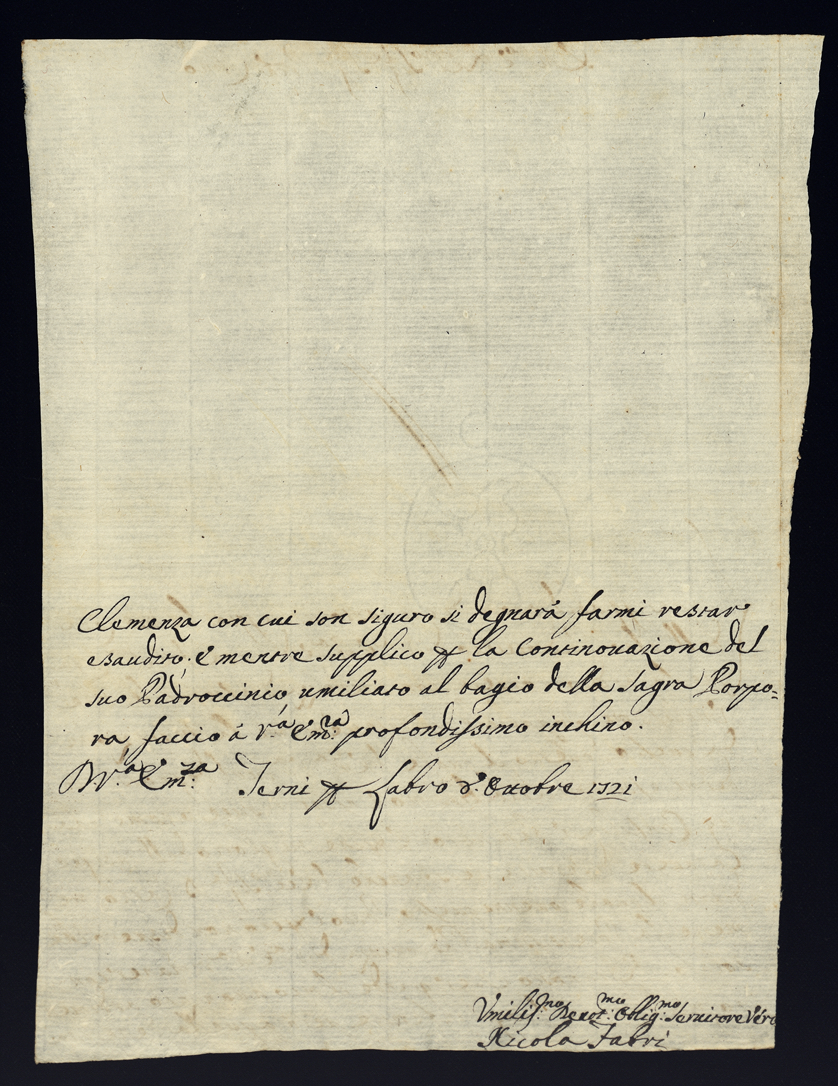 Clemenza con cui son siguro si degnarà farmi restar
esaudito, e mentre supplico la Continouazione del
suo Padroccinio umiliato al bagio della Sagra Porpo=
ra faccio á V.ª Em.za profondissimo inchino.
D V.ª Em.za Terni Labro 8 Ottobre 1721
Vmiliss.mo Devot.mo Obblig.mo Servitore Vero
Nicola Fabri